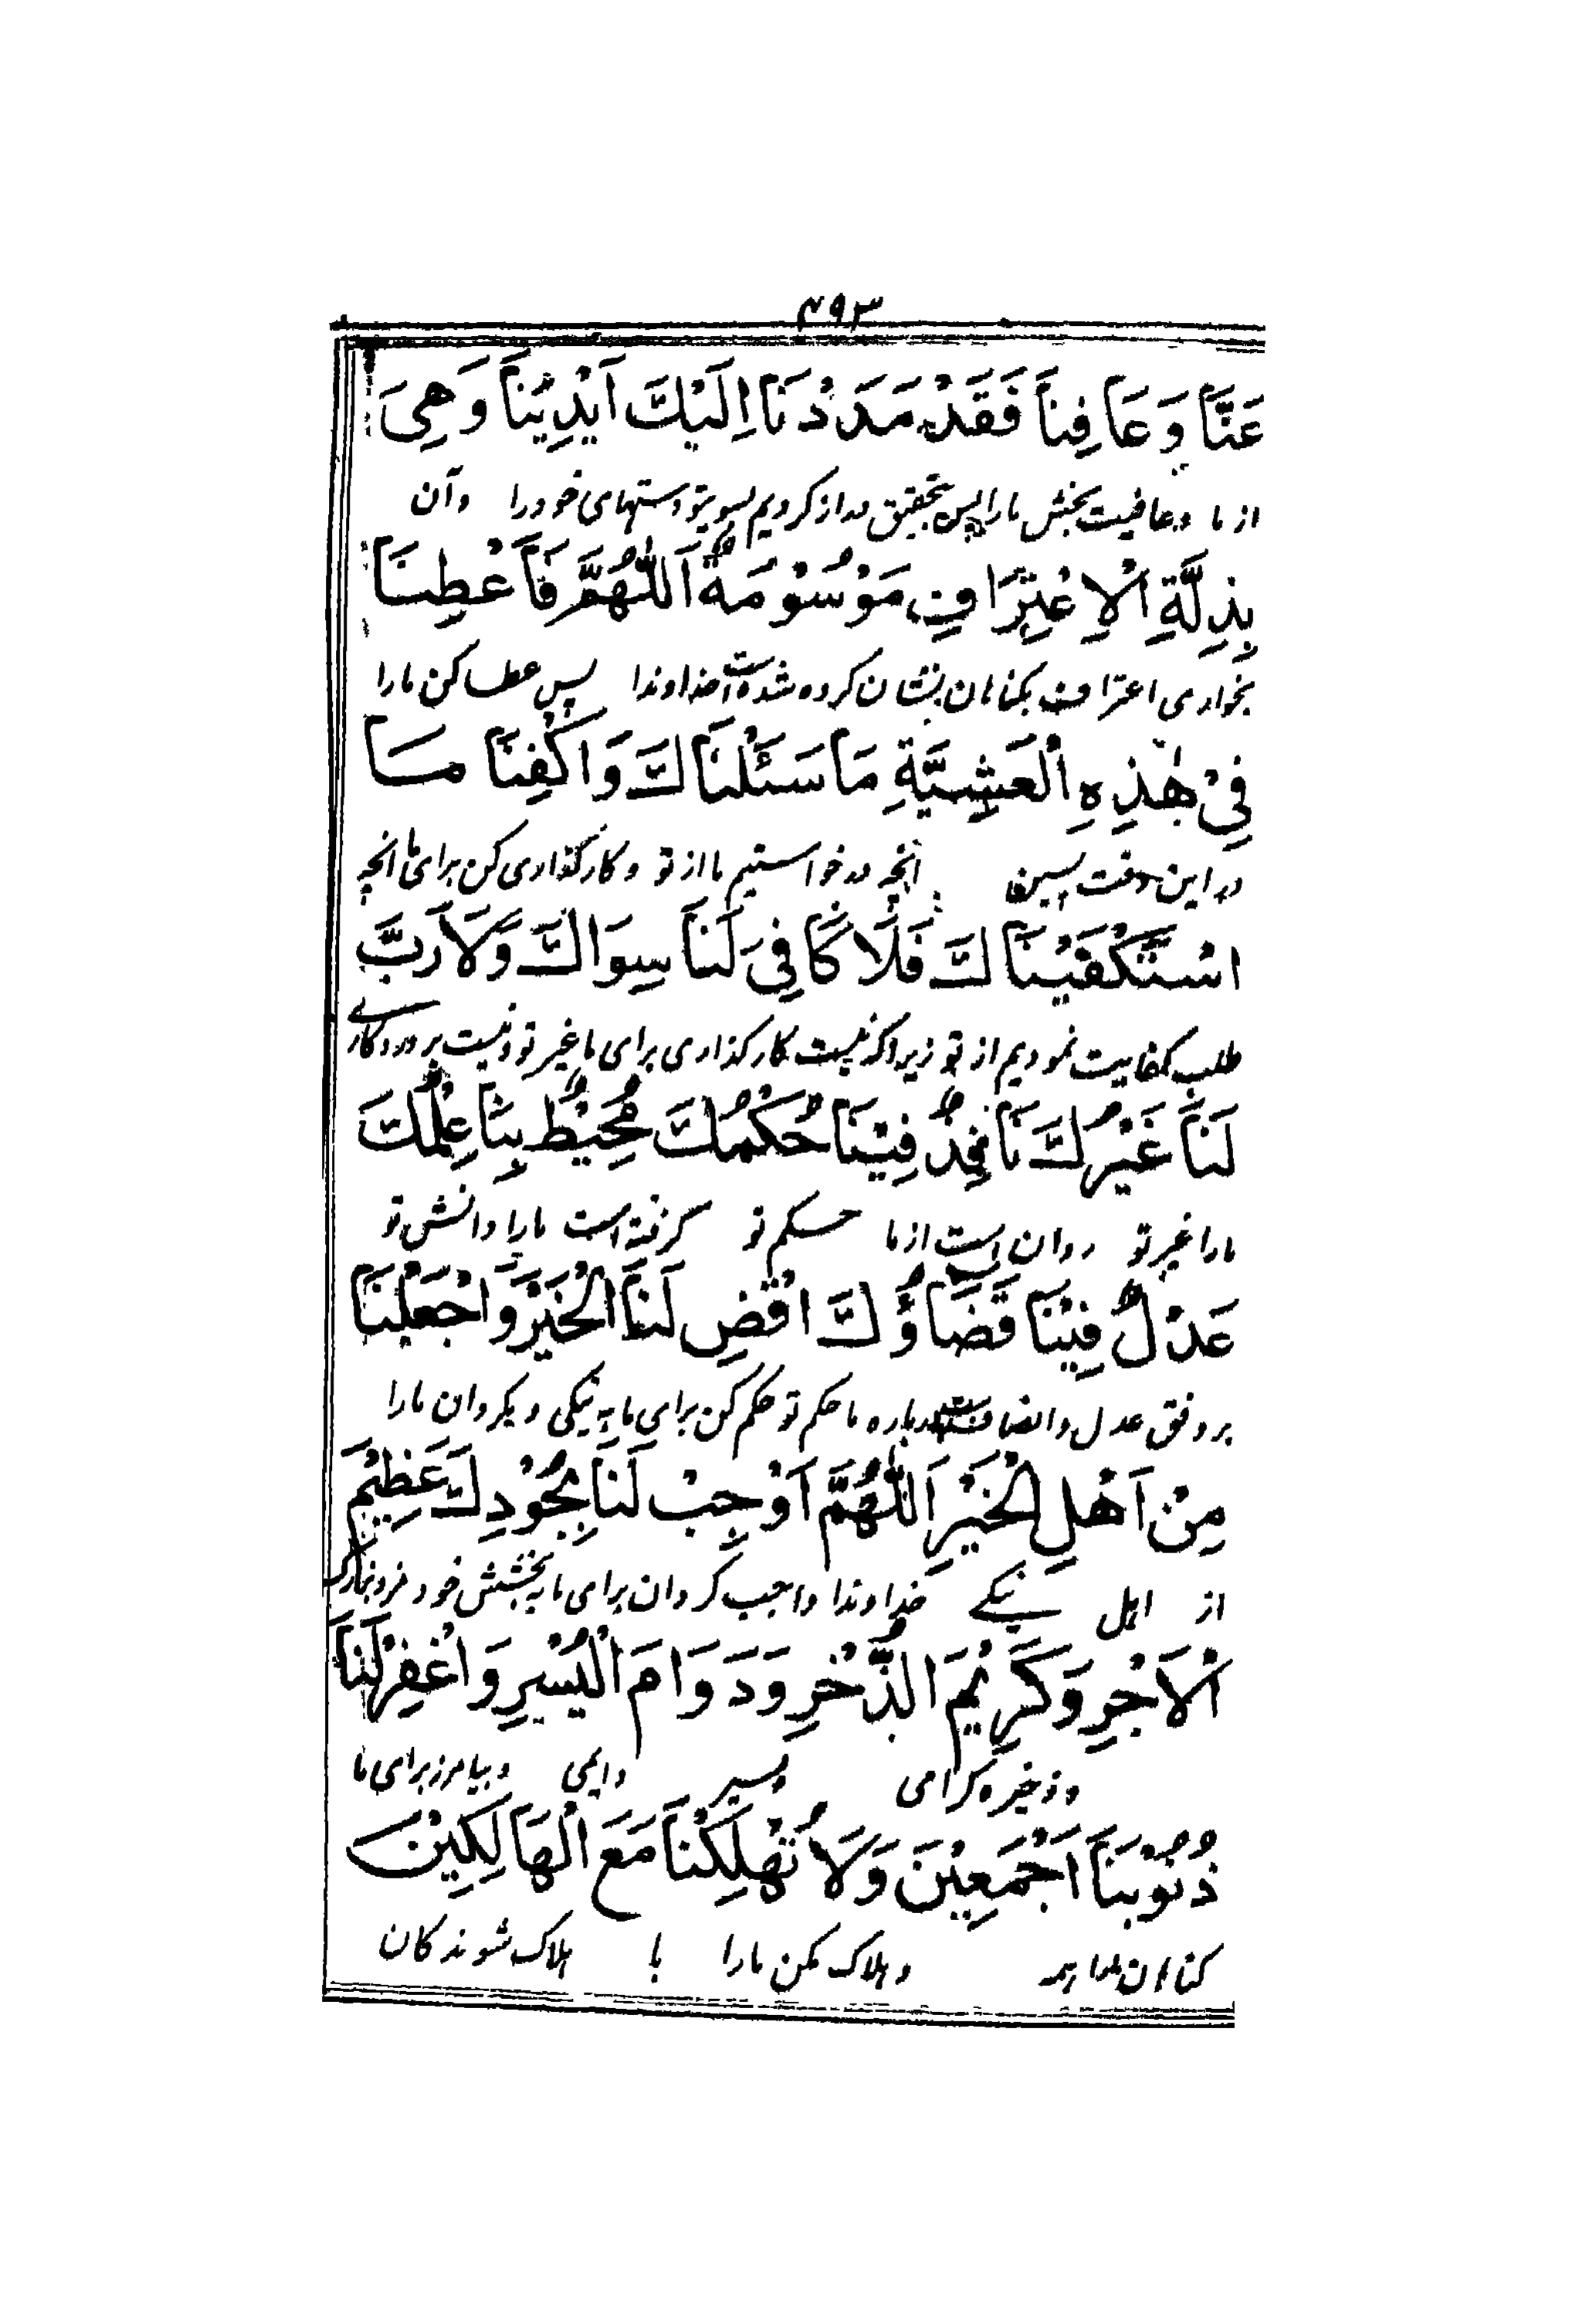 ۴۹۳
عَنَّا وَعَافِنَا فَقَدْ مَدَدْنَا اِلَيْكَ اَيْدِيَنَا وَهِيَ
از ما وعافیت بخش ما را پس بتحقیق دراز کردیم بسوی تو دستهای خود را وآن
بِذِلَّةِ الْاِعْتِرَافِ مَوْسُوْمَةٌ اَللّٰهُمَّ فَاَعْطِنَا
بخواری اعتراف بگناهان نشان کرده شده است خداوندا پس عطا کن ما را
فِيْ هٰذِهِ الْعَشِيَّةِ مَا سَئَلْنَاكَ وَاكْفِنَا مَا
در این وقت پسین آنچه درخواستیم ما از تو و کارگذاری کن برای ما آنچه
اسْتَكْفَيْنَاكَ فَلَا كَافِيَ لَنَا سِوَاكَ وَلَا رَبَّ
طلب کفایت نمودیم از تو زیرا که نیست کارگذاری برای ما غیر تو ونیست پروردگاری
لَنَا غَيْرُكَ نَافِذٌ فِيْنَا حُكْمُكَ مُحِيْطٌ بِنَا عِلْمُكَ
ما را غیر تو روان است از ما حکم تو گرفته است ما را دانش تو
عَدْلٌ فِيْنَا قَضَاؤُكَ اقْضِ لَنَا الْخَيْرَ وَاجْعَلْنَا
بر وفق عدل وانصاف است درباره ما حکم تو حکم کن برای ما به نیکی وبگردان ما را
مِنْ اَهْلِ الْخَيْرِ اَللّٰهُمَّ اَوْجِبْ لَنَا بِجُوْدِكَ عَظِيْمَ
از اهل نیکے خداوندا واجب گردان برای ما به بخشش خود مزد بزرگ
الْاَجْرِ وَكَرِيْمَ الذُّخْرِ وَدَوَامَ الْيُسْرِ وَاغْفِرْ لَنَا
وذخیره گرامی ویسر دایمی وبیامرز برای ما
ذُنُوْبَنَا اَجْمَعِيْنَ وَلَا تُهْلِكْنَا مَعَ الْهَالِكِيْنَ
گناهان وهلاک مکن ما را با هلاک شوندگان